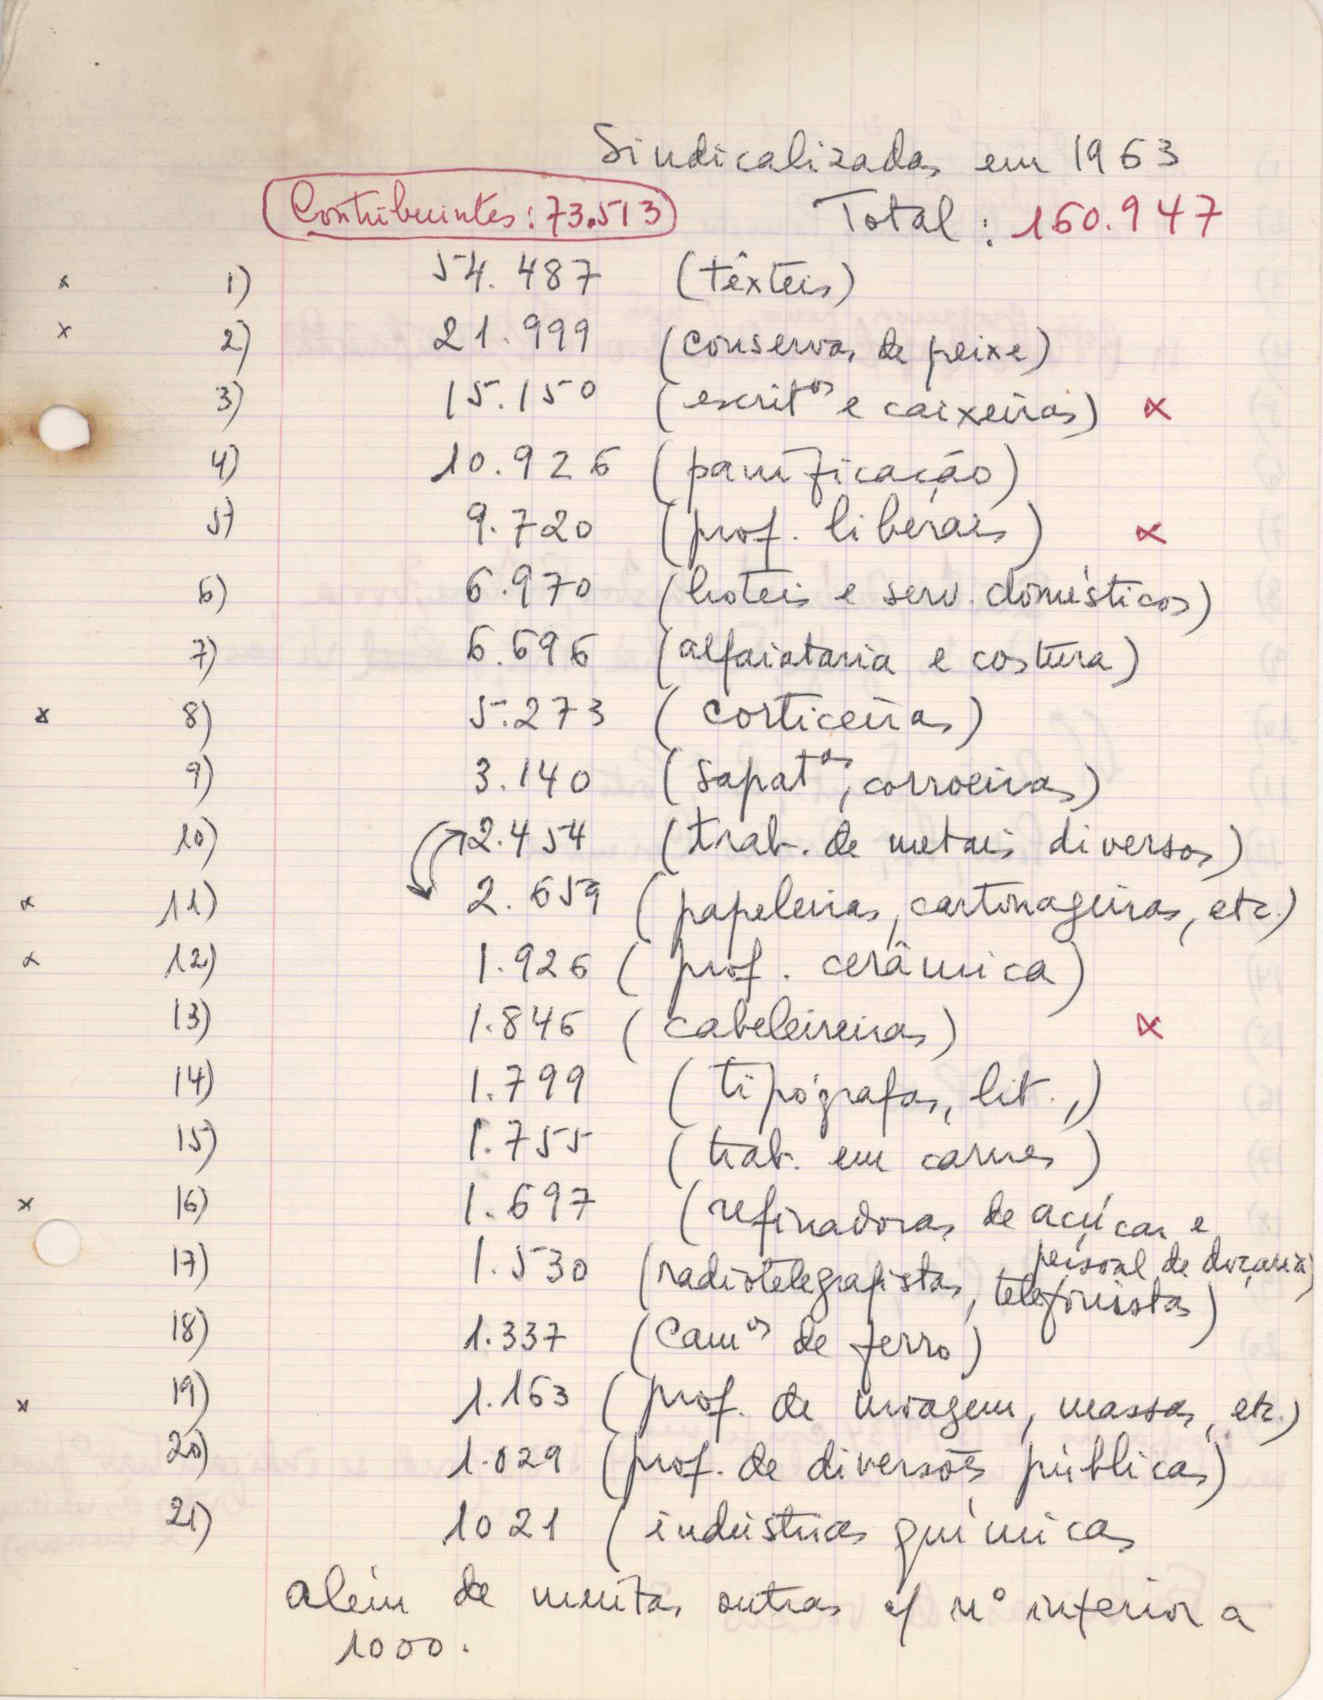 Sindicalizadas em 1963
Contribuintes: 73.513
Total: 160.947
x 1) 54.487 (têxteis)
x 2) 21.999 (conservas de peixe)
3) 15.150 (escritos e caixeiras) x
4) 10.926 (panificação)
5) 9.720 (prof. liberais) x
6) 6.970 (hoteis e serv. domésticos)
7) 6.696 (alfaiataria e costura)
x 8) 5.273 (corticeiras)
9) 3.140 (sapatas, corroeiras)
10) 2.454 (trab. de metais diversos)
x 11) 2.659 (papeleiras, cartonageiras, etc.)
x 12) 1.926 (prof. cerâmica)
13) 1.846 (cabeleireiras) x
14) 1.799 (tipógrafas, lit.,)
15) 1.755 (trab. em carnes)
x 16) 1.697 (refinadoras de açúcar e
pessoal de doçaria)
17) 1.530 (radiotelegrafistas, telefonistas)
18) 1.337 (camos de ferro)
x 19) 1.163 (prof. de moagem, massas, etc.)
20) 1.029 (prof. de diversões públicas)
21) 1021 (indústrias químicas
além de muitas outras c/ nº inferior a
1000.